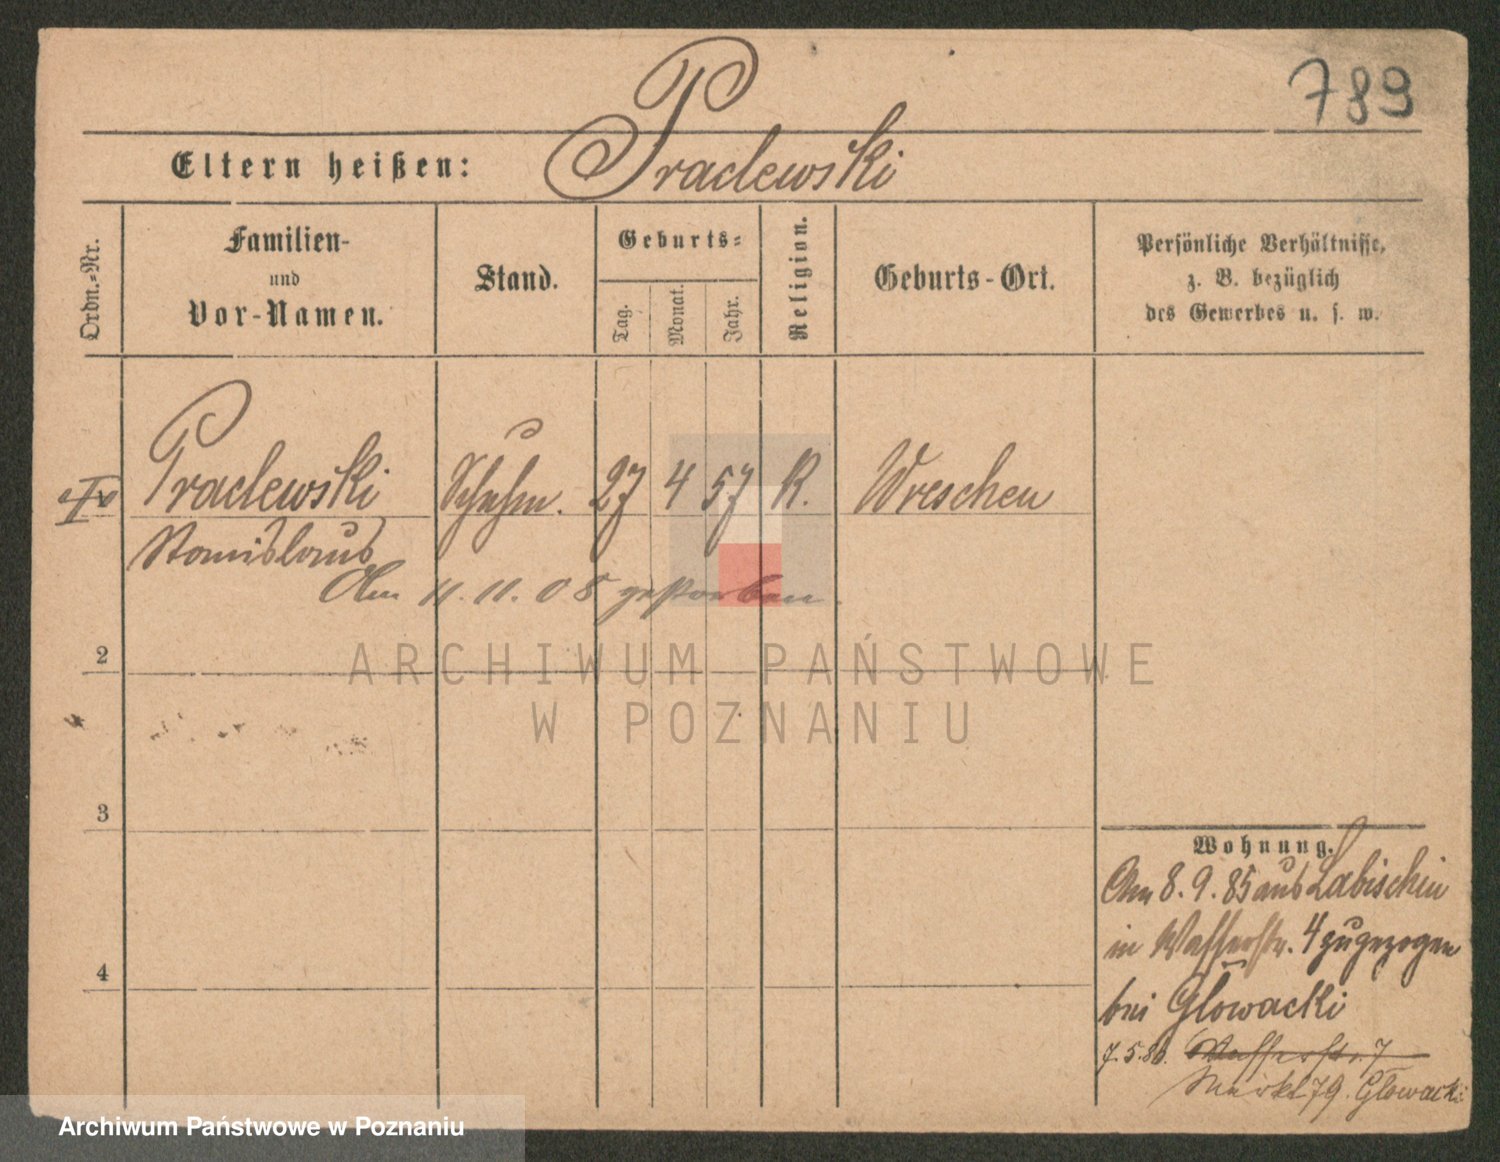 789
Eltern heißen: Pradewski
Ordn.-Nr.
Familien-
und
Vor-Namen.
Stand.
Geburts-
Tag.
Monat.
Jahr.
Religion.
Geburts-Ort.
Persönliche Verhältnisse,
z. B. bezüglich
des Gewerbes u. s. w.
Pradewski Schuhm. 27 4 57 K. Wreschen
Stanislaus
Am 11. 11. 08 gestorben.
2
3
4
Wohnung.
Am 8. 9. 85 aus Labischin
in Wasserstr. 4 zugezogen
bei Glowacki
7. 5. 86. Wasserstr. 7
Markt 79. Glowacki
ARCHIWUM PAŃSTWOWE
W POZNANIU
Archiwum Państwowe w Poznaniu